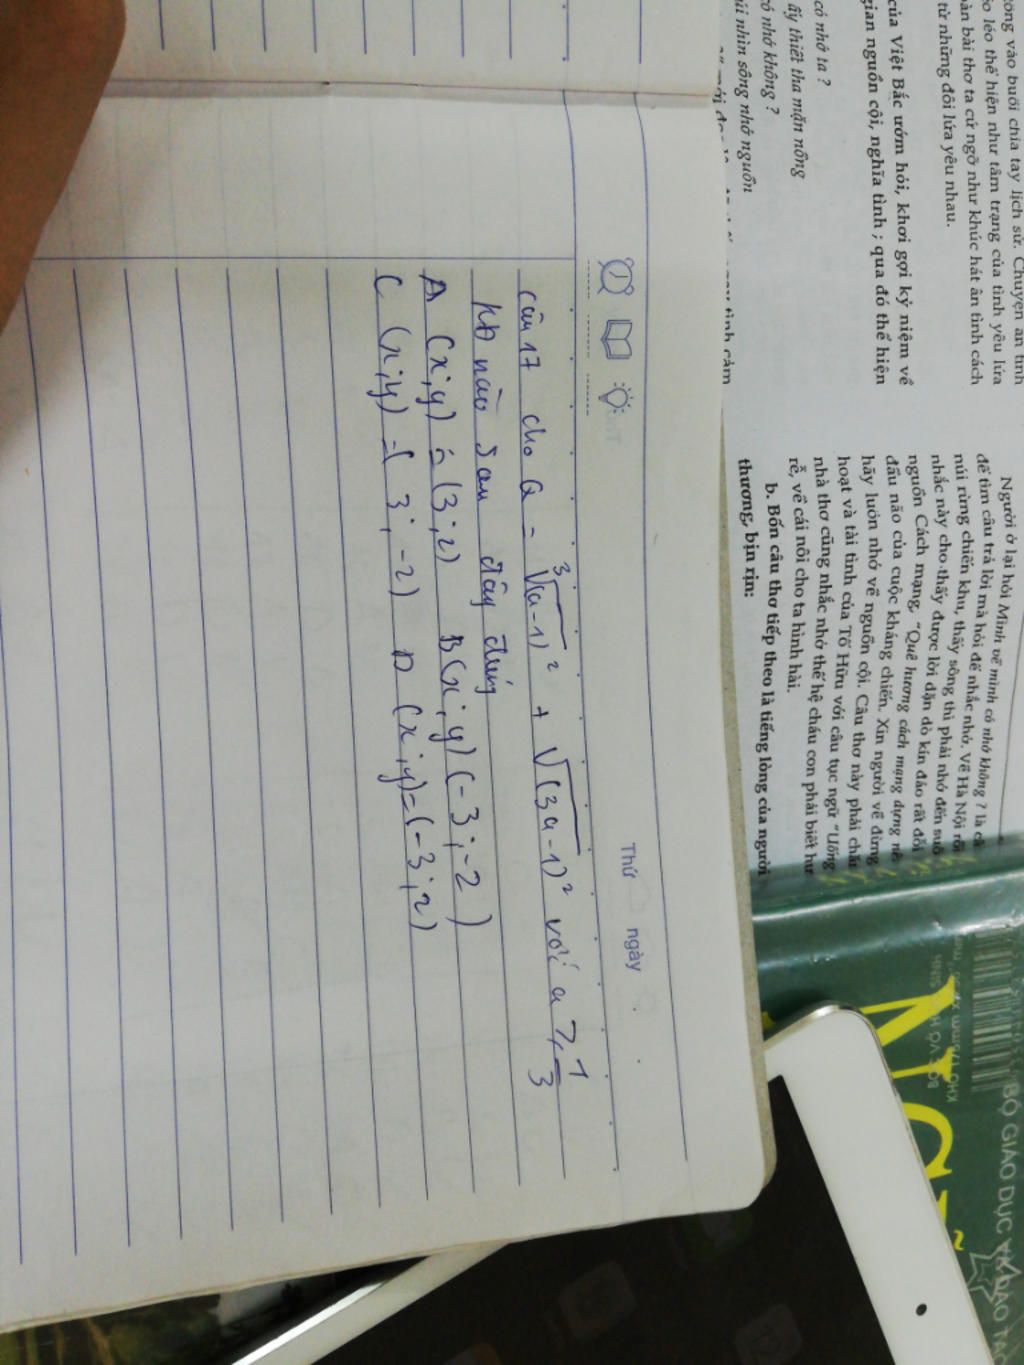 Thứ ngày
câu 17 cho Q = ∛(a-1)² + √(3a-1)² với a ≥ 1/3
KĐ nào sau đây đúng
A (x;y) = (3;2) B(x;y)(-3;-2)
C (x;y) = ( 3; -2) D (x;y)=(-3;2)
có nhớ ta ?
ấy thiết tha mặn nồng
có nhớ không ?
nhìn sông nhớ nguồn
vào buổi chia tay lịch sử. Chuyện ân tình
léo thể hiện như tâm trạng của tình yêu lứa
bài thơ ta cứ ngỡ như khúc hát ân tình cách
từ những đôi lứa yêu nhau.
của Việt Bắc ướm hỏi, khơi gợi kỷ niệm về
gian nguồn cội, nghĩa tình ; qua đó thể hiện
tình cảm
Người ở lại hỏi Mình về mình có nhớ không ? là
để tìm câu trả lời mà hỏi để nhắc nhở. Về Hà Nội rồi
núi rừng chiến khu, thấy sông thì phải nhớ đến
nhắc này cho thấy được lời dặn dò kín đáo rất đỗi
nguồn Cách mạng. “Quê hương cách mạng dựng
đầu não của cuộc kháng chiến. Xin người về đừng
hãy luôn nhớ về nguồn cội. Câu thơ này phải
hoạt và tài tình của Tố Hữu với câu tục ngữ “Uống
nhà thơ cũng nhắc nhở thế hệ cháu con phải biết
rễ, về cái nôi cho ta hình hài.
b. Bốn câu thơ tiếp theo là tiếng lòng của người
thương, bịn rịn:
BỘ GIÁO DỤC VÀ ĐÀO TẠO